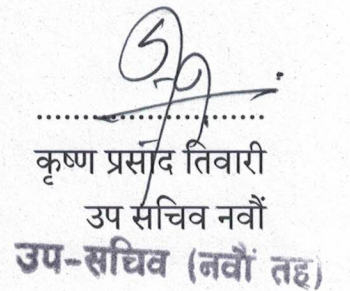 कृष्ण प्रसाद तिवारी
उप सचिव नवौं
उप-सचिव (नवौं तह)